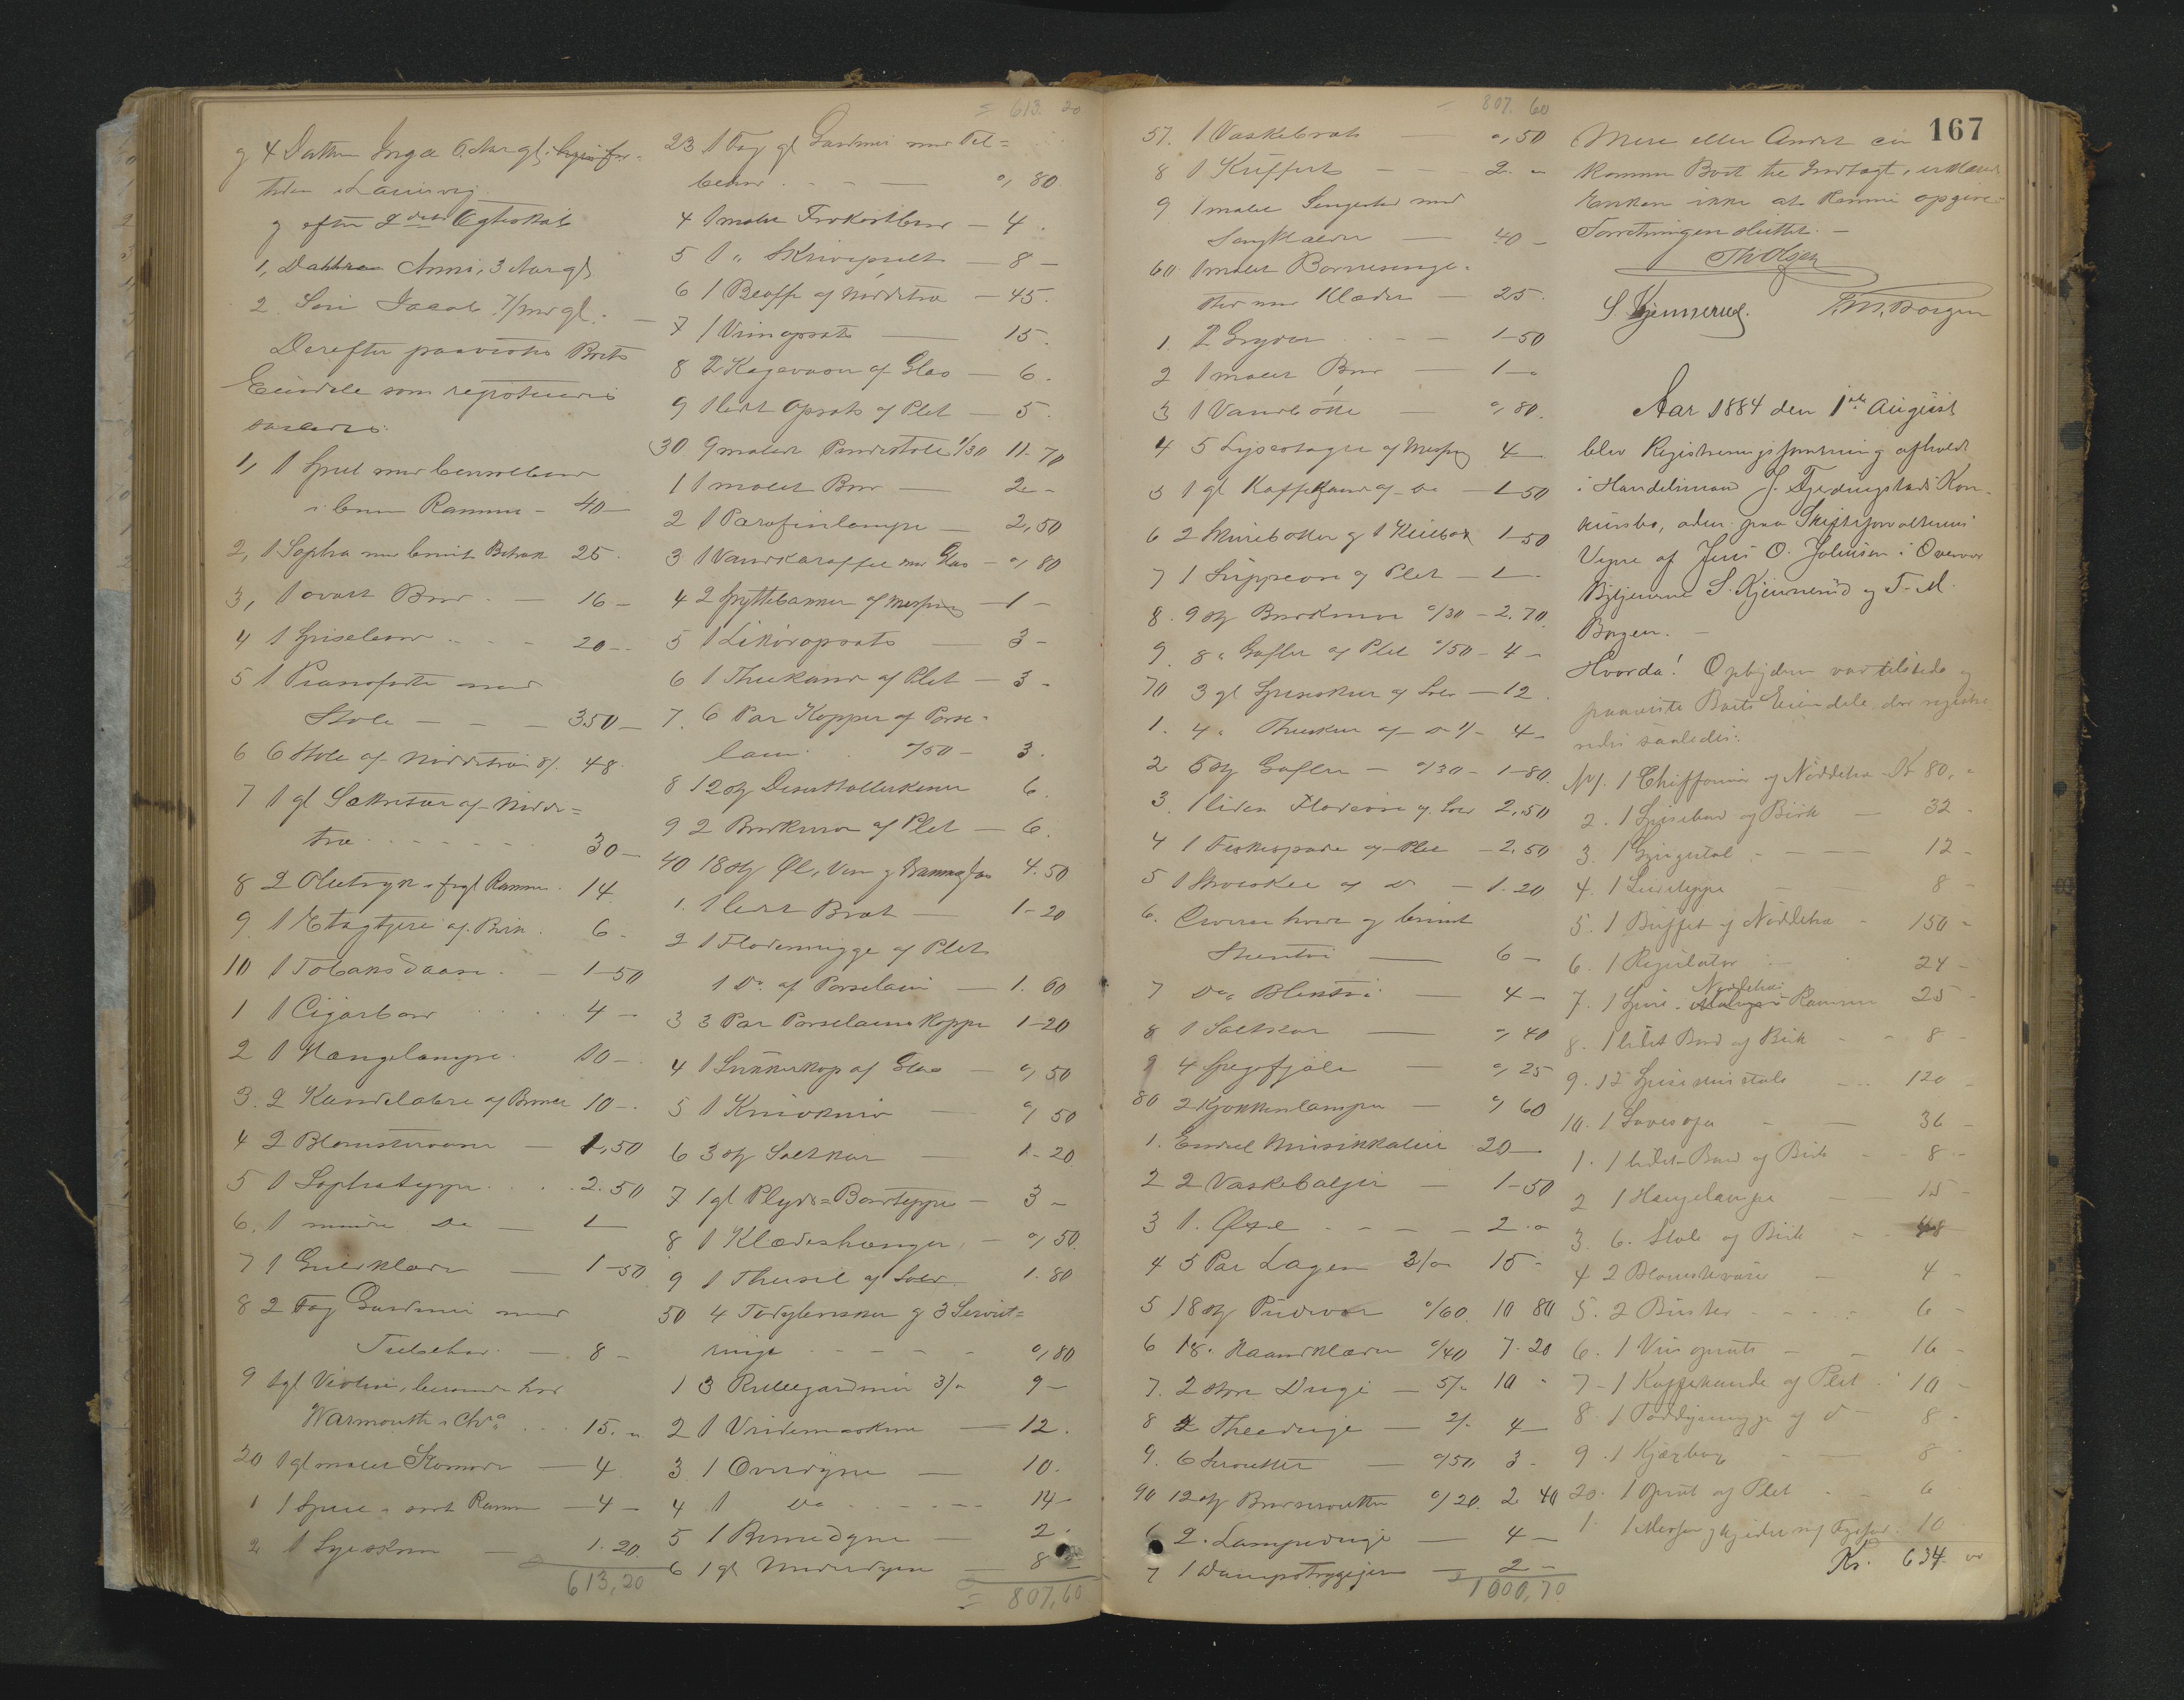 g 4 Datter Inga 6 Aar gl.
tiden i Laurvig
g efter 2det Ægteskab
1, Datter Anni, 3 Aar gl.
2. Søn Jacob 7/ gl.
Derefter paavistes Boets
Eiendele som registreredes
saaledes:
1, 1 Speil med
i Ramme - 40 -
2, 1 Sopha med Betræk 25
3, 1 ovalt Bord - 16 -
4 1 Spisebord - 20 -
5 1 Pianoforte med
Stole - 350 -
6 6 Stole af Nøddetræ 8/. 48
7 1 gl Sekretær af Nødde=
træ 30 -
8 2 Olietryk i forgl Ramme 14
9. 1 Etagére af Birk 6 -
10 1 Tobaksdaase - 1-50
1 1 Cigarbord 4 -
2 1 Hængelampe 10 -
3. 2 Kandelabre af Bronce 10 -
4 2 Blomstervaser - 1,50
5 1 Sophateppe 2. 50
6. 1 mindre Do - 1 -
7 1 Gulvklæde - 1-50
8 2 Fag Gardiner med
Tilbehør - 8 -
9 1 gl Violin, beroende hos
Warmouth i Chr.a 15. -
20 1 gl malet Komode - 4
1 1 Speil i sort Ramme - 4 -
2 1 1. 20
613,20
= 613. 20
23 1 Fag gl Gardiner med Til=
behør - 0,80
4 1 malet Frokostbord - 4.
5 1 " Skrivepult - 8 -
6 1 Beaffe af Nøddetræ - 45.
7 1 Vinopsats - 15.
8 2 Kagevaser af Glas - 6.
9 1 lidet Opsats af Plet - 5.
30 9 malede Pindestole 1/30 11-70
1 1 malet Bord - 2 -
2 1 Parafinlampe - 2,50
3 1 Vandkaraffel med Glas - 0,80
4 2 Spyttebakker af Messing - 1 -
5 1 Likøropsats - 3 -
6 1 Theekande af Plet - 3 -
7. 6 Par Kopper af Porse-
lain 0/50 - 3.
8 12 st Deserttallerkener 6.
9 2 Brødkurve af Plet - 6.
40 18 st Øl, Vin g Dramglas 4.50
1. 1 lidet Bræt - 1-20
2 1 Flødemugge af Plet
1 Do af Porselain - 1. 60
3 3 Par Porselains Kopper 1-20
4 1 Sukkerkop af Glas - 0,50
5 1 - 0,50
6 3 st Saltkar - 1-20
7 1 gl Plyds=Bordteppe - 3 -
8 1 Klædeshænger - 0,50
9 1 Theesil af Sølv 1.80
50 4 g 3 Serviet=
ringe - 0,80
1 3 Rullegardiner 3/- 9 -
2 1 Vridemaskine - 12.
3. 1 Overdyne - 10.
4 1 Do - 14 -
5 1 - 2.
6 1 gl Underdyne - 8 -
= 807,60
- 807. 60
57. 1 Vaskebræt - 0,50
8 1 Kuffert - 2. -
9 1 malet Sengested med
Sengklæder - 40 -
60 1 malet Børneseng-
sted med Klæder - 25.
1. 2 Gryder - 1-50
2 1 malet Bord - 1 -
3 1 Vandbøtte - 0,80.
4 5 Lysestager af Messing 4 -
5 1 gl Kaffekande af Do - 1-50
6 2 g 1 1-50
7 1 Suppeøse af Plet - 1 -
8. 9 st Bordknive 0/30 - 2. 70
9. 8 " Gafler af Plet 0/50 - 4 -
70 3 gl Spiseskeer af Sølv - 12.
1. 4 " Theeskeer af Do 1/- 4 -
2 6 st Gafler - 0/30 - 1-80.
3. 1 liden Flødeøse af Sølv 2,50
4 1 Fiskespade af Plet - 2,50
5 1 Strøeskee af Do - 1.20
6. Diverse hvidt g brunt
Steentøi - 6 -
7 Do Bliktøi - 4 -
8 1 Saltkar - 0,40
9 4 Spegefjæle - 0,25
80 2 Kjøkkenlamper - 0,60
1. Endel Musikkalier 20 -
2 2 Vaskebaljer - 1-50
3 1. Øxe - 2. -
4 5 Par Lagen 3/- 15 -
5 18 st Pudevar 0/60. 10 80
6 18 " Haandklæder 0/40 7. 20
7. 2 store Duge - 5/- 10 -
8 2 Theeduge - 2/- 4 -
9. 6 Servietter - 0/50 3 -
90 12 st 0/20. 2 40
6 2. Lampeduge - 4 -
7 1 - 2 -
1000,70
Mere eller Andet ei
Komme Boet til Indtægt, erklærede
Enken ikke at kunne opgive -
Forretningen sluttet. -
Th Olsen
S Kjennerud. F. M. Borgen
167
Aar 1884 den 1ste August
blev Registreringsforretning afholdt
i Handelsmand J. Fjerdingstads Kon-
kursbo, uden paa Skifteforvalterens
Vegne af Jens O. Johnsen i Overvær
Vidnerne S. Kjennerud g F. M.
Borgen. -
Hvorda! Opbyderen var tilstede g
paaviste Boets Eiendele der registre
redes saaledes:
No 1. 1 Chiffonier af Nøddetræ Kr 80, -
2. 1 Spisebord af Birk - 32 -
3. 1 Gyngestol - 12 -
4. 1 - 8 -
5. 1 Buffet af Nøddetræ - 150 -
6. 1 Regulator - 24 -
7. 1 Speil i Nøddetræ Ramme 25 -
8. 1 lidet Bord af Birk - 8 -
9. 12 Spisestuestole - 120 -
10. 1 Sovesofa - 36 -
1. 1 lidet Bord af Birk - 8 -
2 1 Hængelampe - 15 -
3. 6. Stole af Birk - 48
4 2 Blomstervaser - 4 -
5. 2 Buster - 6 -
6. 1 Vinopsats - 16 -
7 - 1 Kaffekande af Plet - 10 -
8. 1 Toddymugge af Do - 8 -
9. 1 - 8 -
20. 1 Opsats af Plet - 6
1. 1 10
Kr. 634 00